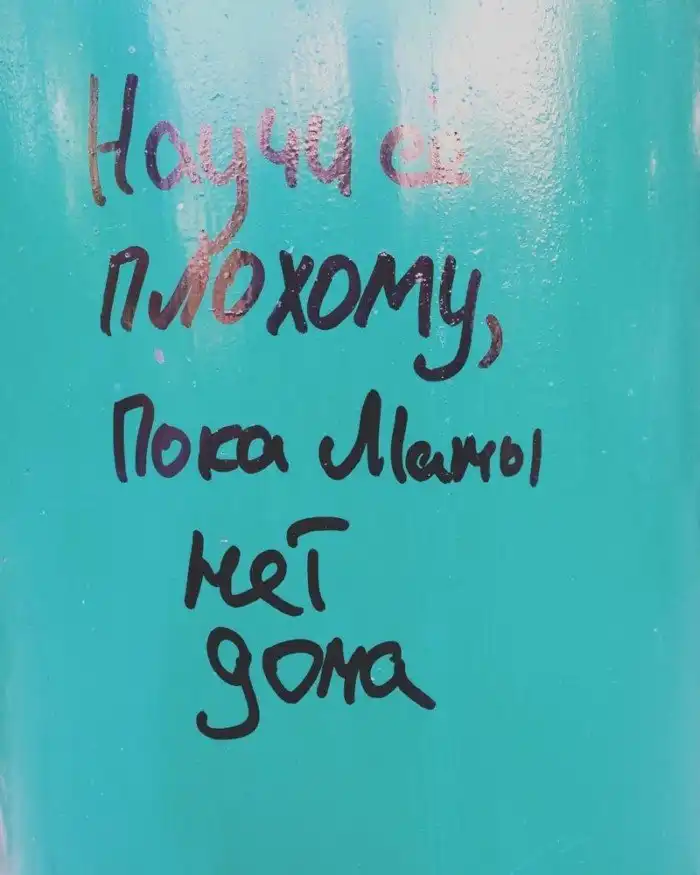 Научи
плохому,
Пока Мамы
нет
дома